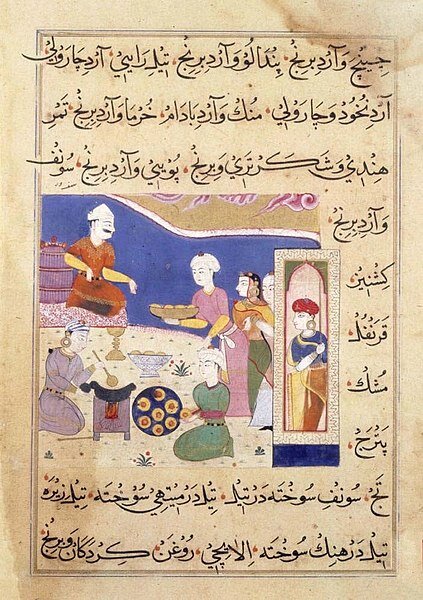 وآرد برنج پندالو وآرد برنج تیل رایي آرد چارولي
آرد نخود و چارولي منك وآرد بادام خرما وآرد برنج تمر
هندي و شکر تري و برنج پويي وآرد برنج سونف
وآرد برنج
کشنیز
قرنفل
مشك
پترج
تج سونف سوخته در تیل تیل در میتهي سوخته تیل زیره
تیل در هنك سوخته الاچي روغن کردکان و برنج